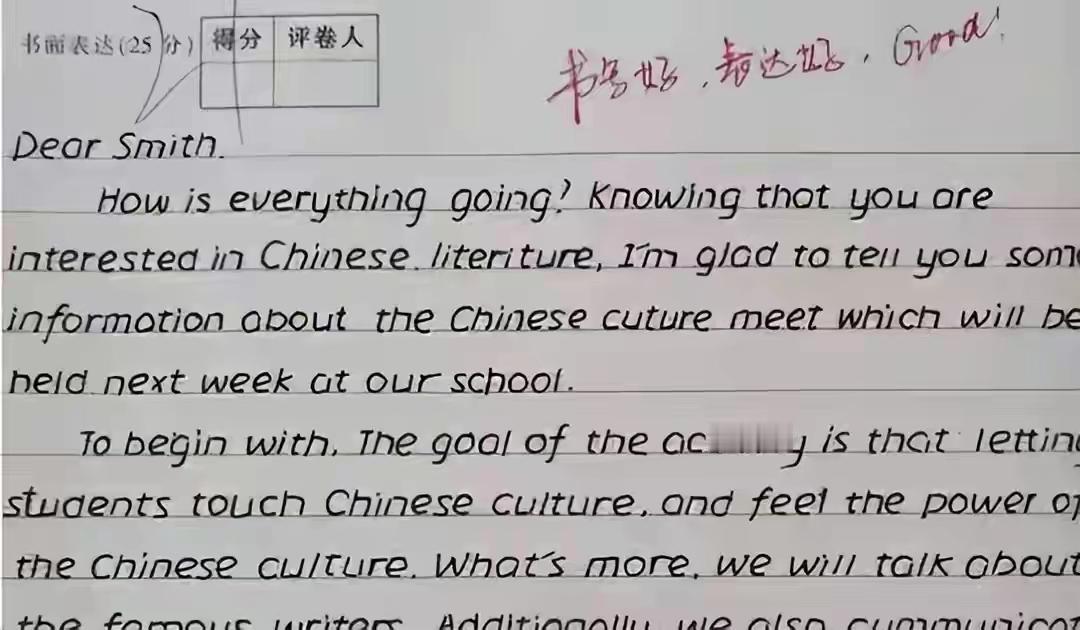 书面表达(25分) 得分 评卷人
书写好，表达好，Good!
Dear Smith.
How is everything going? Knowing that you are
interested in Chinese literiture, I'm glad to tell you som
information about the Chinese cuture meet which will be
held next week at our school.
To begin with, The goal of the is that letting
students touch Chinese culture, and feel the power of
the Chinese culture. What's more, we will talk about
the famous writers. Additionally, we also